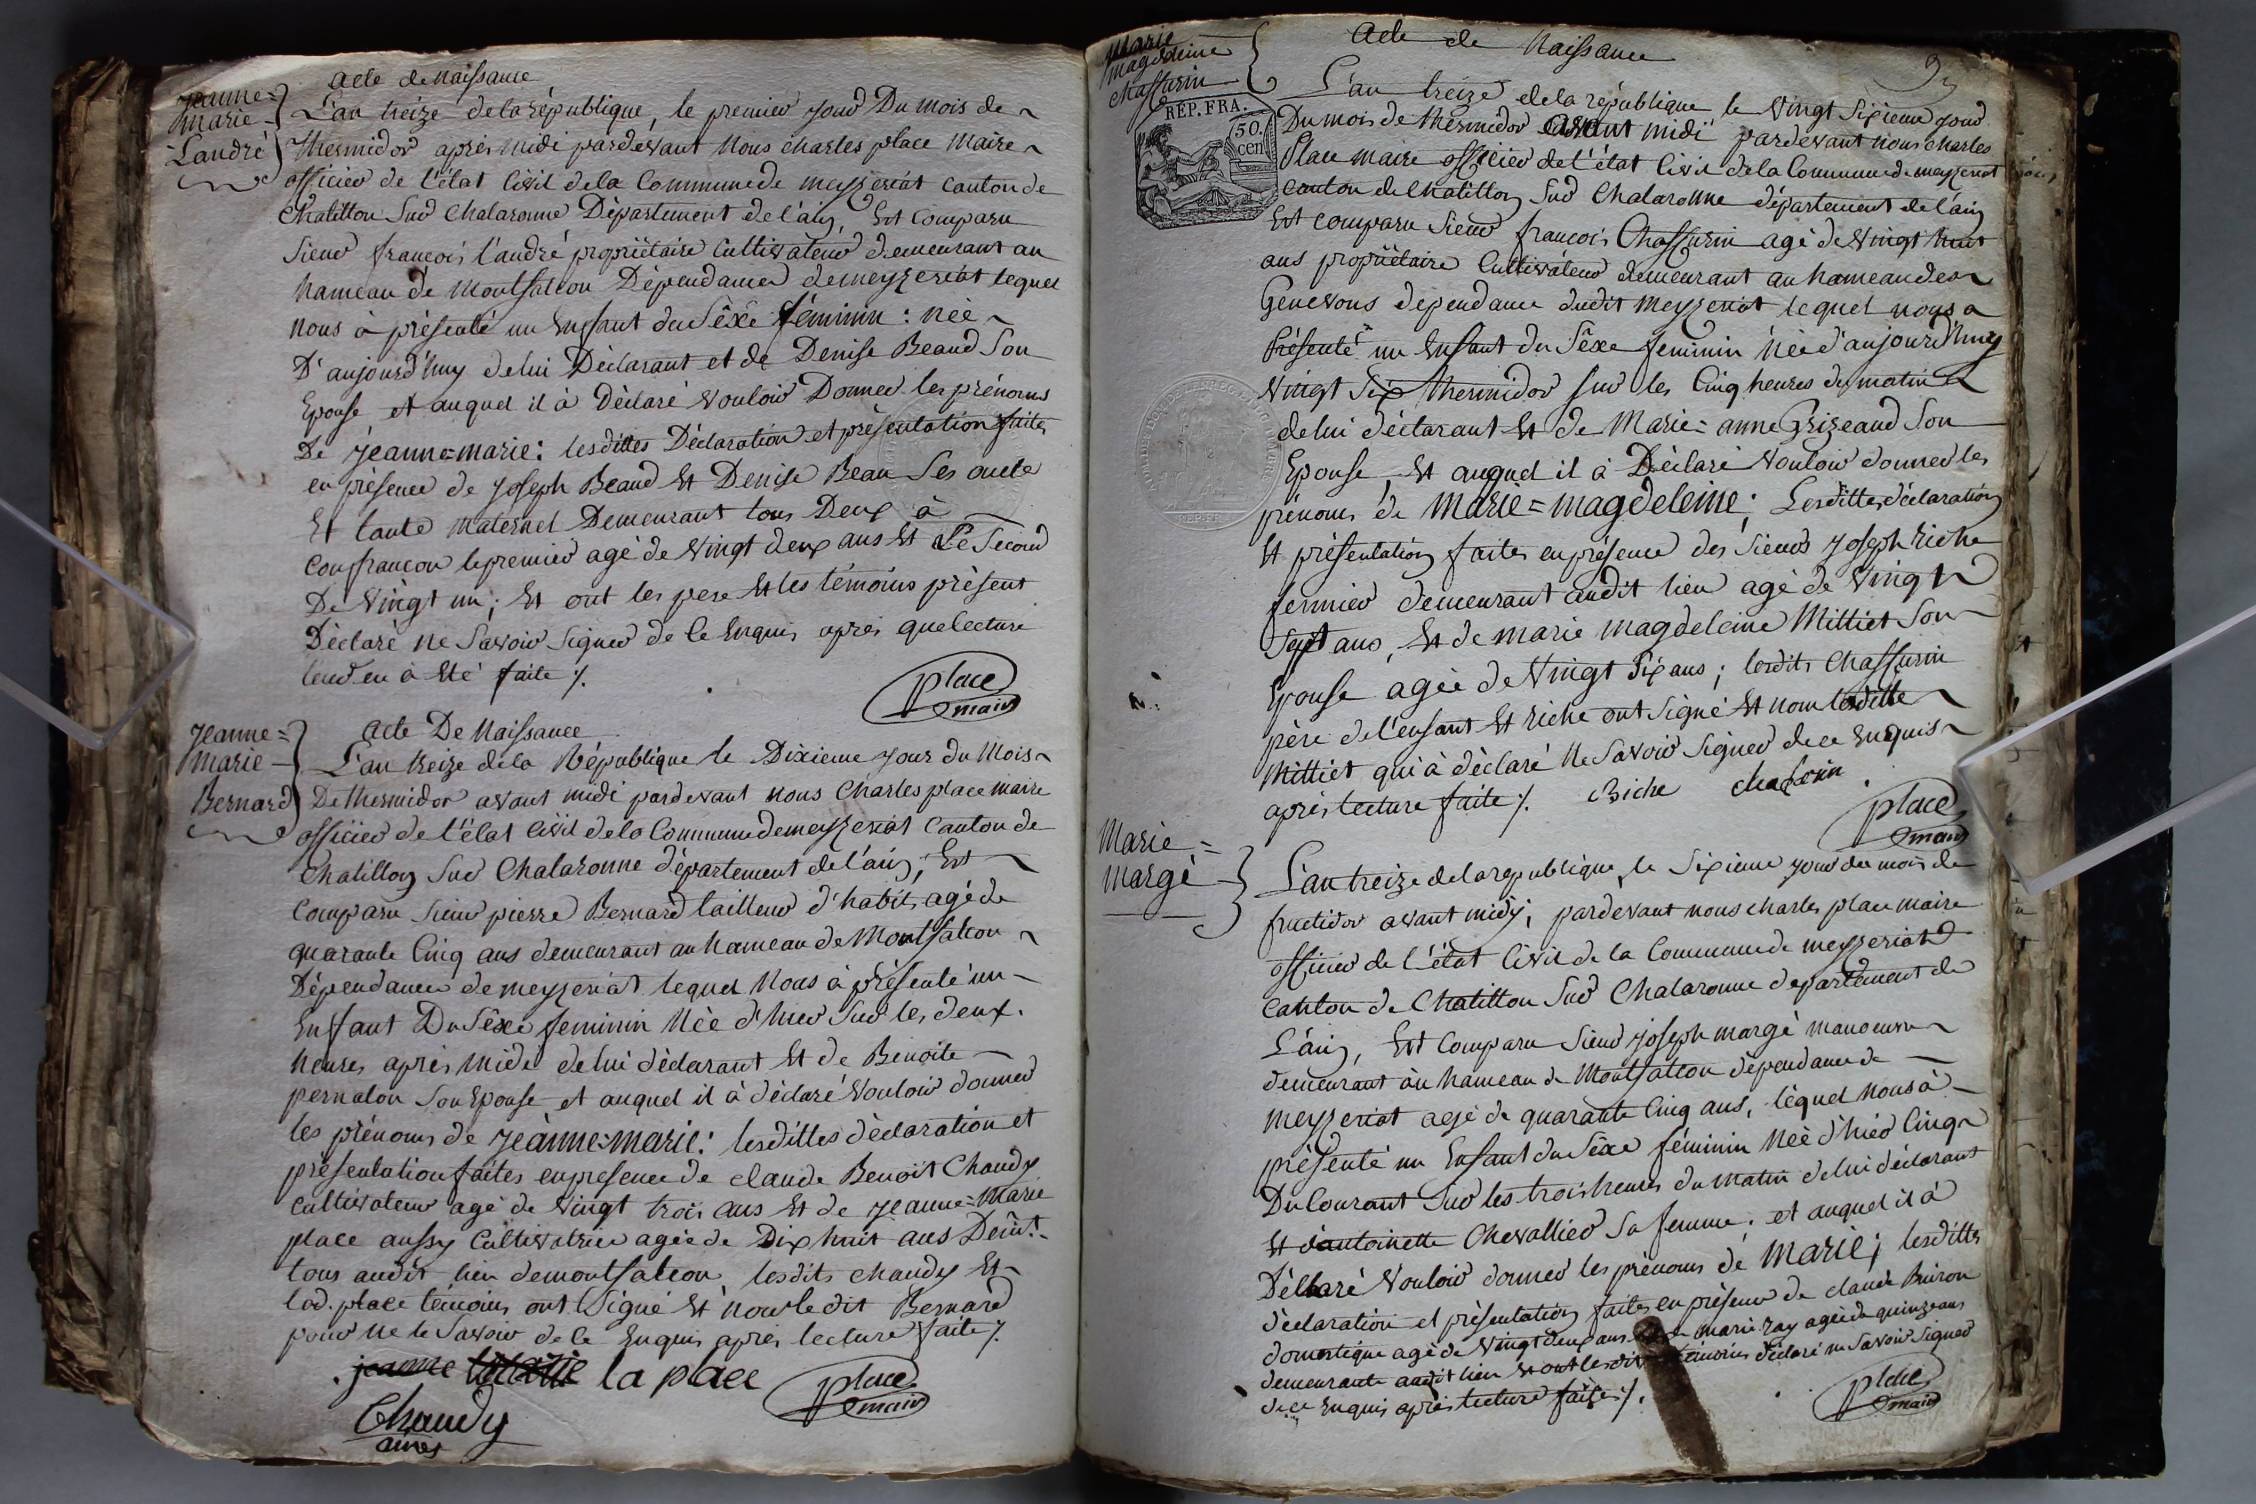 acte de Naissance
Jeanne=
marie
Landré
L'an treize de la république, le premier jour Du mois de
Thermidor après midi pardevant Nous charles place Maire
officier de l'état Civil de la Commune de meyzeriat canton de
Chatillon Sur Chalaronne Département de l'ain, Est comparu
Sieur francois l'andré propriëtaire Cultivateur demeurant au
hameau de Montfalcon Dépendance de meyzeriat lequel
nous à présenté un Enfant du Sêxe féminin : néè
D'aujourd'huy de lui Déclarant et de Denise Beaud Son
Epouse et auquel il à Déclaré vouloir Donner les prénoms
De jeanne=marie : lesdittes Déclaration et présentation faites
en présence de Joseph Beaud Et Denise Beau Ses oncle
Et tante maternel Demeurant tous Deux à
Confrancon le premier agé de vingt deux ans Et Le Second
De vingt un ; Et ont les pere Et les témoins présent
Déclaré ne Savoir Signer de ce Enquis après que lecture
leur en à Eté faite ./.
place
maire
Jeanne=
marie
Bernard
acte De Naissance
L'an treize de la République le Dixieme jour du Mois
De thermidor avant midi pardevant nous Charles place maire
officier de l'état Civil de la Commune de meyzeriat Canton de
Chatillon Sur Chalaronne département de l'ain ; Est
Comparu Sieur pierre Bernard tailleur d'habits agé de
quarante Cinq ans demeurant au hameau de Montfalcon
Dépendance de meyzeriat lequel Nous à présenté un
Enfant Du Sêxe feminin Néè d'hier Sur les deux
heures après midi de lui déclarant Et de Benoite
pernalon Son Epouse et auquel il à déclaré Vouloir donner
les prénoms de jeanne=marie : lesdittes déclaration et
présentation faites en presence de claude Benoit Chaudy
Cultivateur agé de vingt trois ans Et de jeanne=Marie
place aussy Cultivatrice agée de Dix huit ans Demt.
tous audit lieu de montfalcon lesdits chaudy Et
lad. place témoins ont Signé Et non le dit Bernard
pour ne le Savoir de ce Enquis après lecture faite ./.
jeanne la place
place
maire
Chaudy
Marie
magdeleine
chassurin
acte de Naissance
RÉP. FRA.
50.
cen
L'an treize de la république le Vingt Sixieme jour
Du mois de thermidor avant midi pardevant nous charles
Place maire officier de l'état Civil de la Commune de meyzeriat
canton de Chatillon Sur Chalaronne département de l'ain
Est comparu Sieur francois Chassurin agé de vingt huit
ans propriëtaire Cultivateur demeurant au hameau des
Genevons dépendance dudit Meyzeriat lequel nous a
Présenté un Enfant du Sêxe feminin Néè d'aujourd'huy
vingt Six thermidor Sur les Cinq heures du matin
de lui déclarant Et de Marie=anne Grizeaud Son
Epouse, Et auquel il à Déclaré Vouloir donner les
prénoms de Marie=magdeleine ; Lesdittes déclaration
Et présentation faites en présence des Sieurs Joseph Riche
fermier demeurant audit lieu agé de Vingt
Sept ans, Et de marie magdeleine Milliet Son
Epouse agée de Vingt Six ans ; lesdits Chassurin
père de l'enfant Et Riche ont Signé Et non laditte
Milliet qui à déclaré Ne Savoir Signer de ce Enquis
après lecture faite ./. Riche
place
maire
Marie=
margé
L'an treize de la republique, le Sixieme jour du mois de
fructidor avant midy ; pardevant nous charles place maire
officier de l'état Civil de la Commune de meyzeriat
canton de Chatillon Sur Chalaronne département de
L'ain, Est Comparu Sieur joseph margé manoeuvre
demeurant àu hameau de Montfalcon dépendance de
meyzeriat agé de quarante Cinq ans, lequel nous à
présenté un Enfant du Sêxe féminin Néè d'hier Cinq
Du Courant Sur les trois heures du matin de lui déclarant
Et d'antoinette Chevallier Sa femme. et auquel il à
Déclaré Vouloir donner les prénoms de Marie ; lesdittes
déclaration et présentation faites en présence de claude Buiron
domestique agé de Vingt deux ans marie ray agée de quinze ans
demeurants audit lieu Et ont lesdits témoins déclaré ne Savoir Signer
de ce Enquis après lecture faite ./.
place
maire